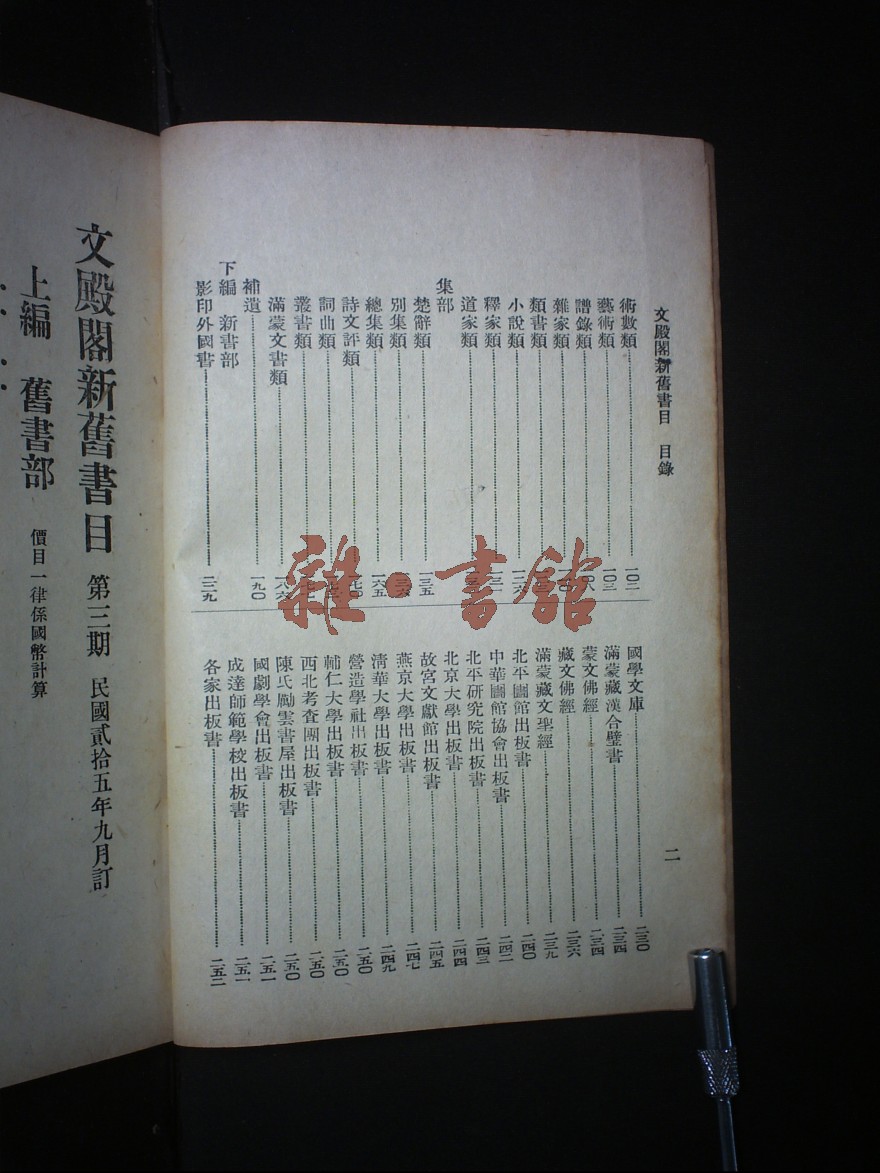 文殿閣新舊書目　目錄
二
術數類…一〇二
藝術類…一〇三
譜錄類…一〇八
雜家類
類書類
小說類…一二六
釋家類
道家類
集部
楚辭類…一三五
別集類…一三六
總集類…一六五
詩文評類
詞曲類
叢書類
滿蒙文書類…一八六
補遺…一九〇
下編　新書部
影印外國書…二二九
國學文庫…二三〇
滿蒙藏漢合璧書…二三四
蒙文佛經…二三四
藏文佛經…二三六
滿蒙藏文聖經…二三九
北平圖館出板書…二四〇
中華圖館協會出板書…二四二
北平研究院出板書…二四三
北京大學出板書…二四四
故宮文獻館出板書…二四五
燕京大學出板書…二四七
清華大學出板書…二四九
營造學社出板書…二五〇
輔仁大學出板書…二五〇
西北考查團出板書…二五〇
陳氏勵雲書屋出板書…二五〇
國劇學會出板書…二五一
成達師範學校出板書…二五一
各家出板書…二五二
文殿閣新舊書目　第三期　民國貳拾五年九月訂
上編　舊書部　價目一律係國幣計算
雜·書館